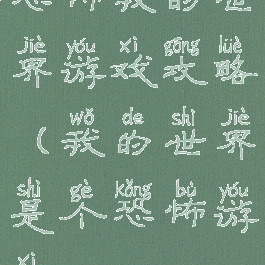 jiè yóu xì gōng lüè
界游戏攻略
wǒ de shì jiè
（我的世界
shì gè kǒng bù yóu
是个恐怖游
xì